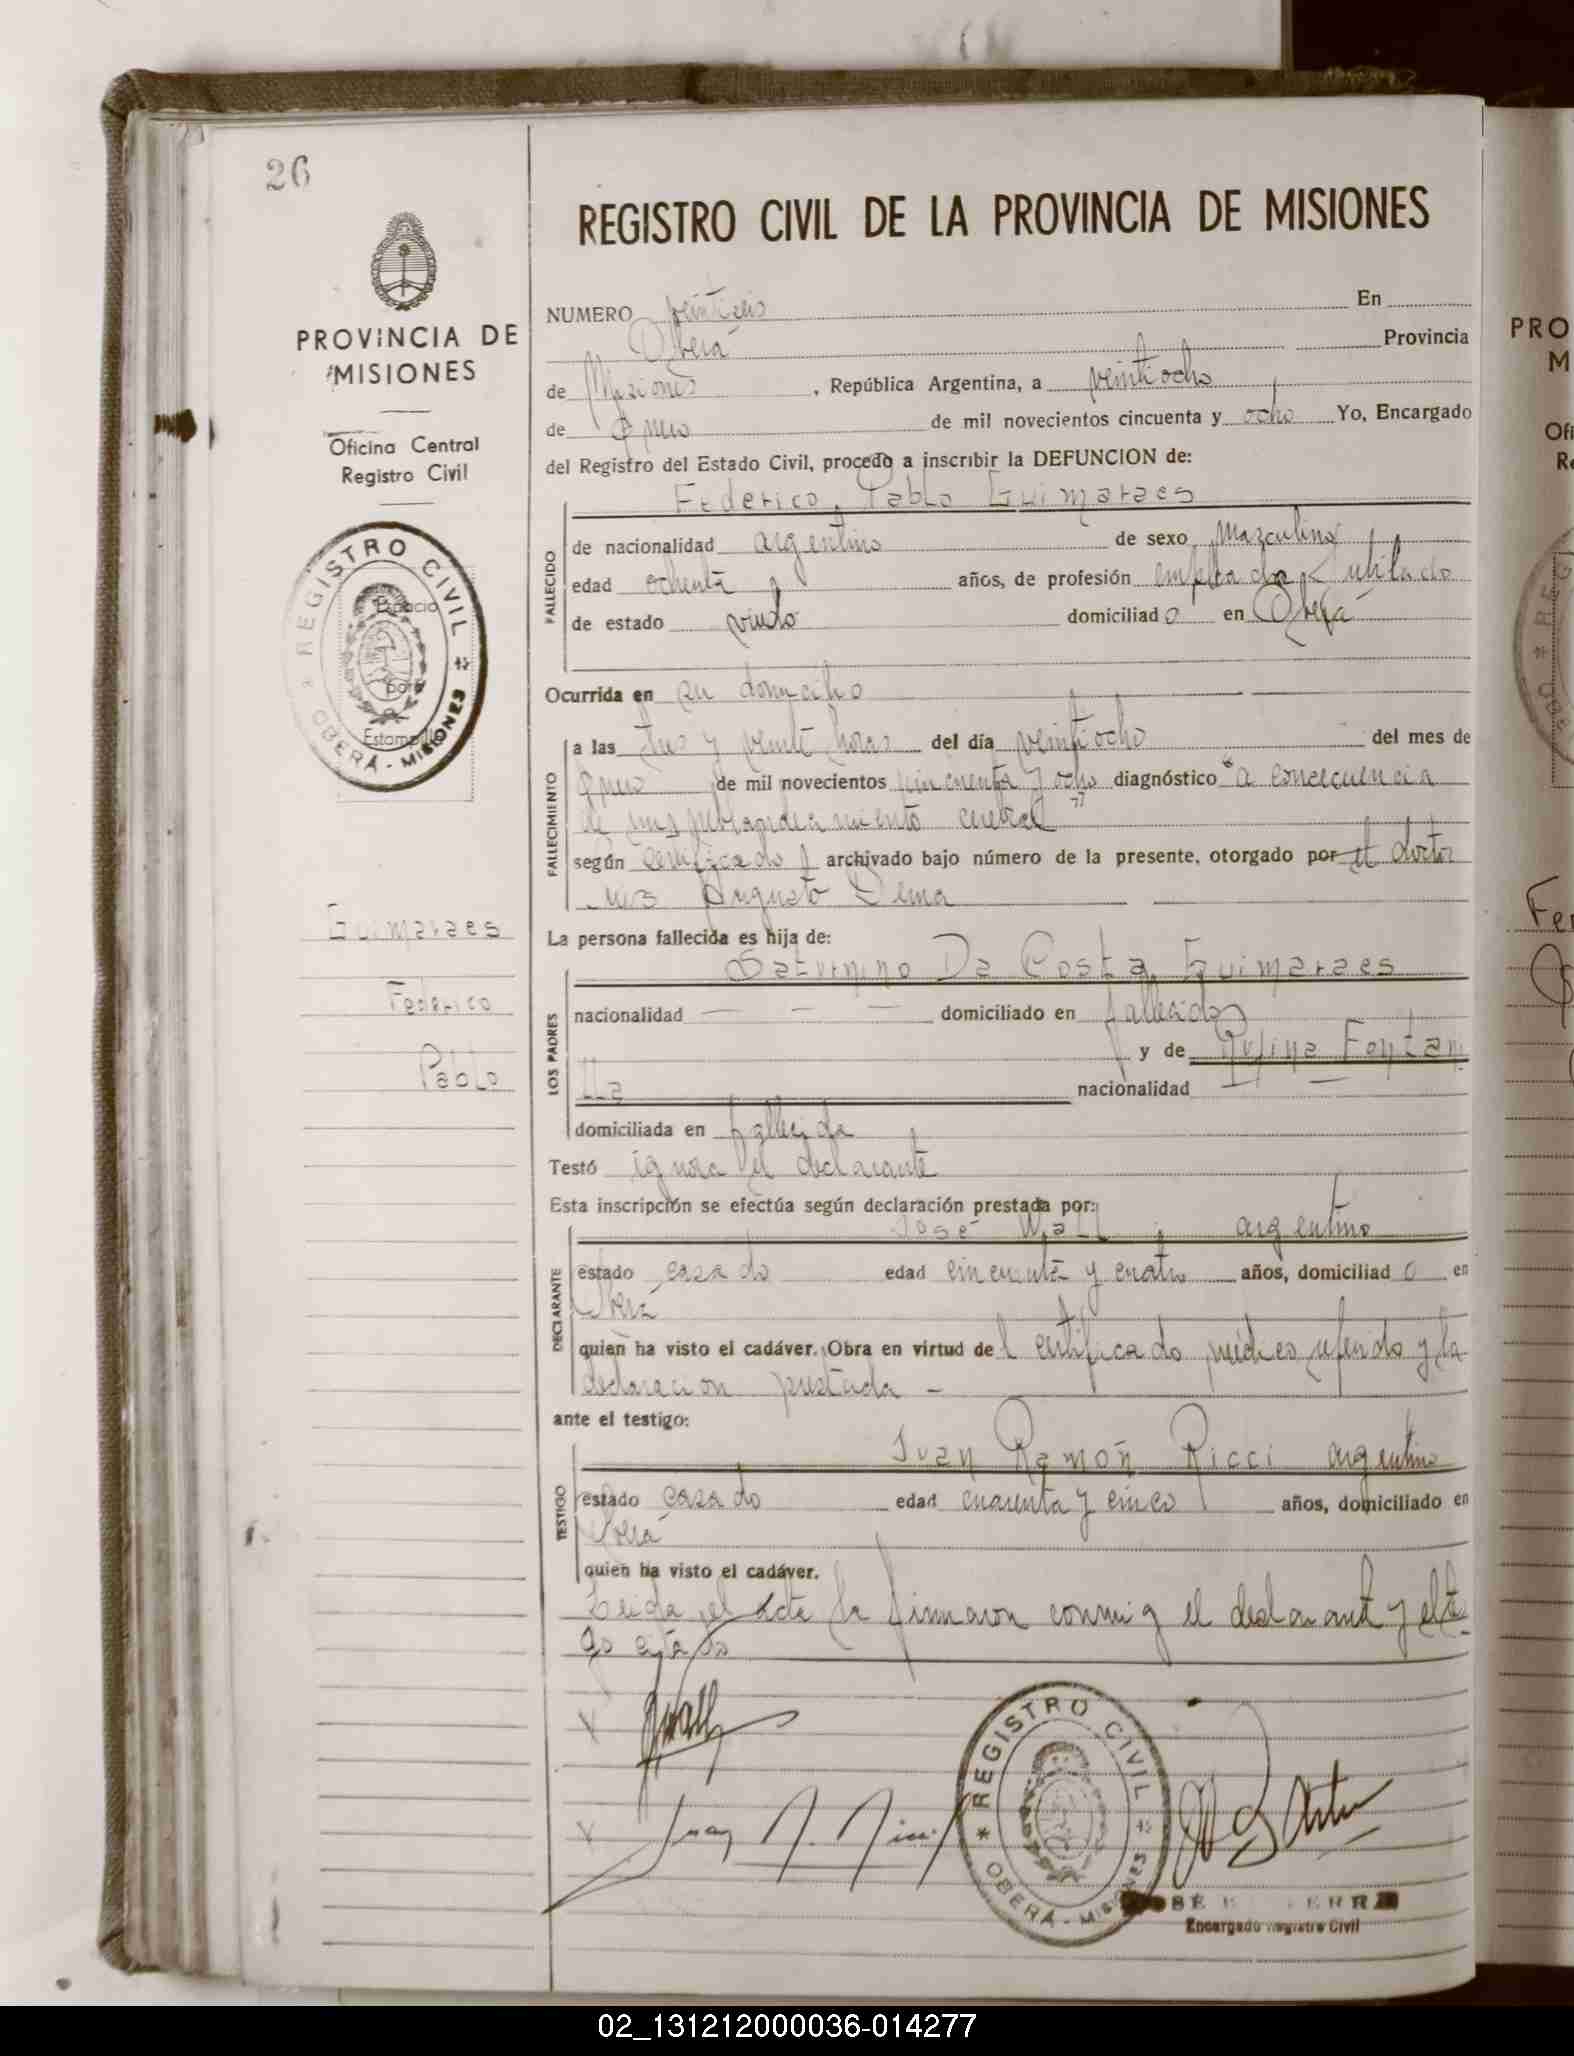 26
REGISTRO CIVIL DE LA PROVINCIA DE MISIONES
PROVINCIA DE
MISIONES
Oficina Central
Registro Civil
REGISTRO CIVIL
OBERÁ - MISIONES
Espacio
para
Estampilla
Guimaraes
Federico
Pablo
NUMERO veintiseis En
Oberá Provincia
de Misiones, República Argentina, a veintiocho
de Enero de mil novecientos cincuenta y ocho Yo, Encargado
del Registro del Estado Civil, procedo a inscribir la DEFUNCION de:
Federico Pablo Guimaraes
FALLECIDO
de nacionalidad argentino de sexo masculino
edad ochenta años, de profesión empleado Jubilado
de estado viudo domiciliado en Oberá
Ocurrida en su domicilio
FALLECIMIENTO
a las tres y veinte horas del día veintiocho del mes de
Enero de mil novecientos cincuenta y ocho diagnóstico "a concecuencia
de reblandecimiento cerebral"
según certificado archivado bajo número de la presente, otorgado por el doctor
Luis Augusto Derna
La persona fallecida es hija de:
LOS PADRES
Saturnino Da Costa Guimaraes
nacionalidad — — — domiciliado en fallecido
y de Rufina Fontan
lla nacionalidad — —
domiciliada en fallecida
Testó ignora el declarante
Esta inscripción se efectúa según declaración prestada por:
DECLARANTE
José Wall, argentino
estado casado edad cincuenta y cuatro años, domiciliado en
Oberá
quien ha visto el cadáver. Obra en virtud del certificado médico referido y la
declaracion prestada -
ante el testigo:
TESTIGO
Juan Ramón Ricci argentino
estado casado edad cuarenta y cinco años, domiciliado en
Oberá
quien ha visto el cadáver.
Leida el acta la firmaron conmigo el declarante y el testi-
go citado
JWall
Juan R. Ricci
REGISTRO CIVIL
OBERÁ - MISIONES
Encargado Registro Civil
PRO
M
Ofi
Re
Fe
02_131212000036-014277